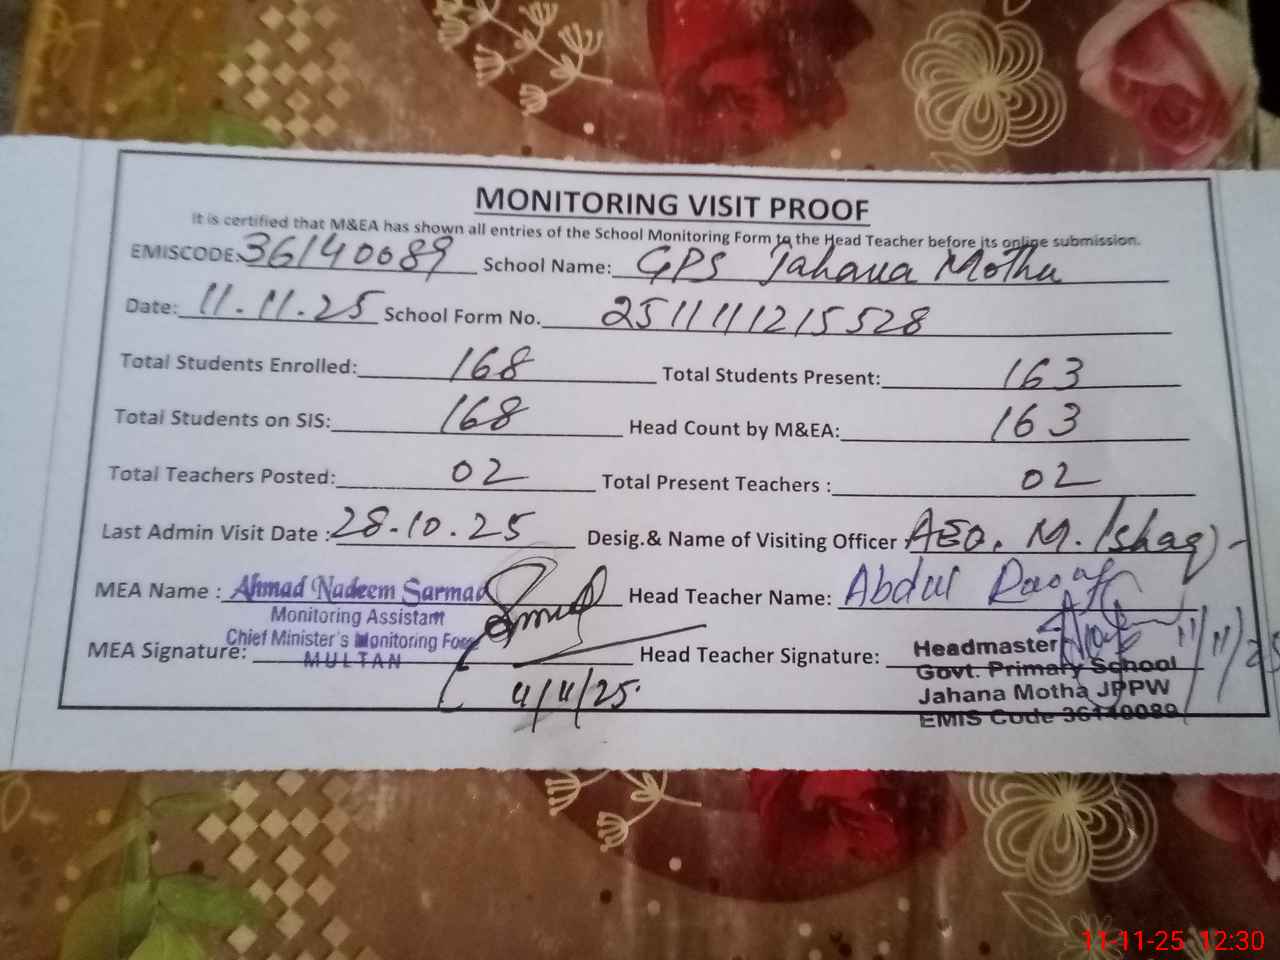 MONITORING VISIT PROOF
It is certified that M&EA has shown all entries of the School Monitoring Form to the Head Teacher before its online submission.
EMISCODE: 36140089 School Name: GPS Jahana Motha
Date: 11.11.25 School Form No. 2511111215528
Total Students Enrolled: 168 Total Students Present: 163
Total Students on SIS: 168 Head Count by M&EA: 163
Total Teachers Posted: 02 Total Present Teachers : 02
Last Admin Visit Date : 28.10.25 Desig.& Name of Visiting Officer : AEO. M. Ishaq
MEA Name : Ahmad Nadeem Sarmad Head Teacher Name: Abdul Raoof
Monitoring Assistant
Chief Minister's Monitoring Force
MULTAN
MEA Signature: Head Teacher Signature:
11/11/25
Headmaster
Govt. Primary School
Jahana Motha JPPW
EMIS Code 36140089
11/11/25
11-11-25 12:30